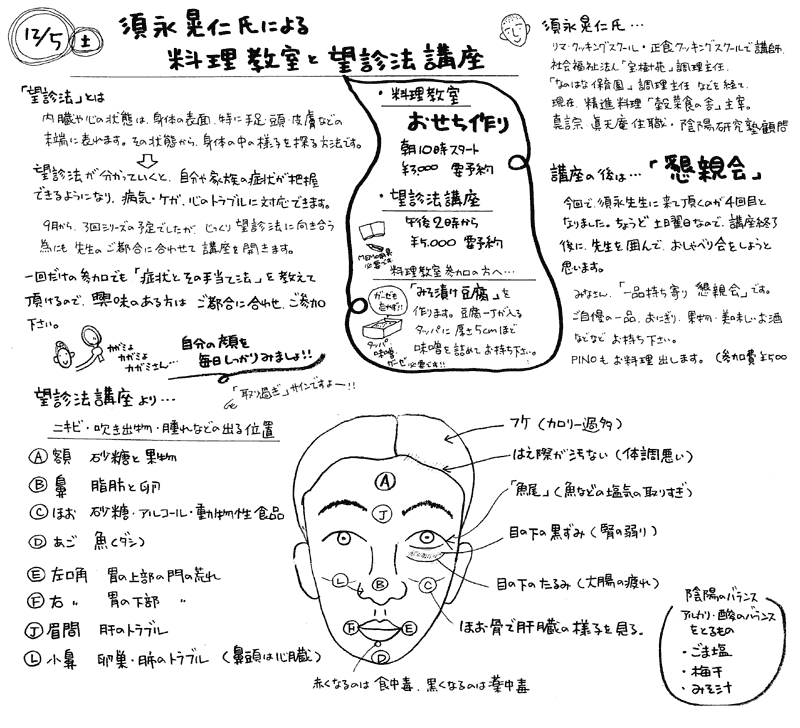 12/5 土
須永晃仁氏による
料理教室と望診法講座
須永晃仁氏…
リマ・クッキングスクール・正食クッキングスクールで講師.
社会福祉法人「宝樹苑」調理主任.
「なのはな保育園」調理主任 などを経て.
現在. 精進料理「穀菜食の舎」主宰。
真言宗 眞天庵住職・陰陽研究塾顧問
「望診法」とは
内臓や心の状態は、身体の表面、特に手足・頭・皮膚などの
末端に表れます。その状態から、身体の中の様子を探る方法です。
望診法が分かっていくと、自分や家族の症状が把握
できるようになり、病気・ケガ、心のトラブルに対応できます。
9月から、3回シリーズの予定でしたが、じっくり望診法に向き合う
為にも先生のご都合に合わせて講座を開きます。
一回だけの参加でも「症状とその手当て法」を教えて
頂けるので、興味のある方は ご都合に合わせ、ご参加
下さい。
カガミよ
カガミよ
カガミさん…
自分の顔を
毎日しっかりみましょ!!
「取り過ぎ」サインですよー!!
・料理教室
おせち作り
朝10時スタート
¥3,000 要予約
・望診法講座
午後2時から
¥5,000 要予約
MEMO用具
必要です
料理教室参加の方へ…
ガーゼも
忘れず!!
「みそ漬け豆腐」を
作ります。豆腐一丁が入る
タッパに厚さ5cmほど
味噌を詰めてお持ち下さい。
タッパ
味噌
ガーゼ必要です!!
講座の後は…「懇親会」
今回で、須永先生に来て頂くのが4回目と
なりました。ちょうど土曜日なので、講座終了
後に、先生を囲んで、おしゃべり会をしようと
思います。
みなさん、「一品持ち寄り 懇親会」です。
ご自慢の一品、おにぎり・果物・美味しいお酒
などなど お持ち下さい。
PINOもお料理出します。(参加費¥500
望診法講座より…
ニキビ・吹き出物・腫れなどの出る位置
Ⓐ 額 砂糖と果物
Ⓑ 鼻 脂肪と卵
Ⓒ ほお 砂糖・アルコール・動物性食品
Ⓓ あご 魚(ダシ)
Ⓔ 左口角 胃の上部の門の荒れ
Ⓕ 右 〃 胃の下部 〃
Ⓙ 眉間 肝のトラブル
Ⓛ 小鼻 卵巣・肺のトラブル (鼻頭は心臓)
A
J
L
B
C
F
E
D
フケ (カロリー過多)
はえ際が汚ない (体調悪い)
「魚尾」(魚などの塩気の取りすぎ)
目の下の黒ずみ (腎の弱り)
目の下のたるみ (大腸の疲れ)
ほお骨で肝臓の様子を見る。
赤くなるのは食中毒、黒くなるのは薬中毒
陰陽のバランス
アルカリ・酸のバランス
をとるもの
・ごま塩
・梅干
・みそ汁